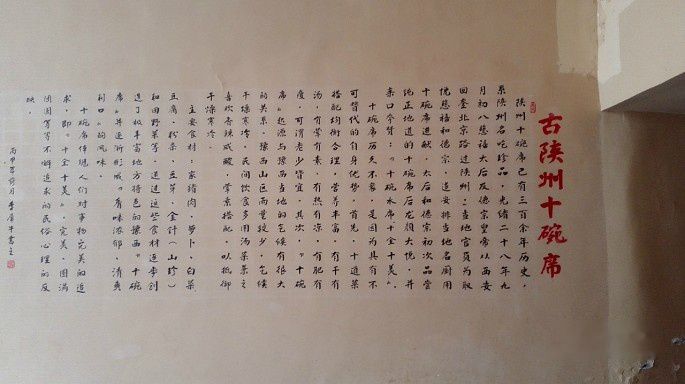 古陕州十碗席
陕州十碗席已有三百余年历史，
系陕州名吃珍品，光绪二十八年九
月初八慈禧太后及德宗皇帝从西安
回銮北京路过陕州，当地官员为取
悦慈禧和德宗，遂安排当地名厨用
十碗席进献，太后和德宗初次品尝
纯正地道的十碗席后龙颜大悦，并
亲口夸赞：“十碗水席十全十美”。
十碗席历久不衰，是因为具有不
可替代的自身优势，首先，十道菜
搭配均衡合理，营养丰富，有干有
汤，有荤有素，有热有凉，有肥有
瘦，可谓老少皆宜，其次，“十碗
席”起源与豫西当地的气候有很大
的关系，豫西山区雨量较少，气候
干燥寒冷，民间饮食多用汤菜
喜欢香辣咸酸，荤素搭配，以抵御
干燥寒冷。
主要食材：家猪肉，萝卜，白菜
豆腐，粉条，豆芽，金针（山珍）
和田野菜等，通过这些食材逐渐创
造了极丰富地方特色的豫西“十碗
席”并逐渐形成“香味浓郁，清爽
利口”的风味。
十碗席体现人们对事物完美的追
求，即“十全十美”，完美，圆满
团圆等等不断追求的民俗心理的反
映。
丙申年